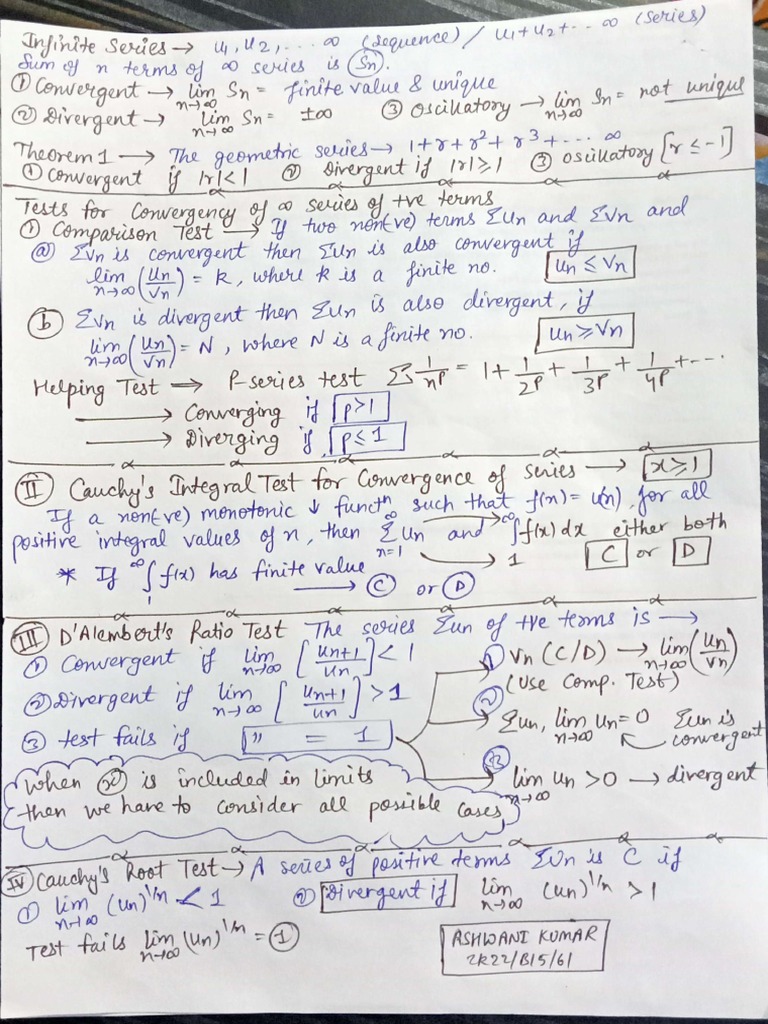 Infinite Series → u1, u2, ... ∞ (sequence) / u1+u2+... ∞ (series)
Sum of n terms of ∞ series is Sn.
① Convergent → lim n→∞ Sn = finite value & unique
② Divergent → lim n→∞ Sn = ±∞ ③ Oscillatory → lim n→∞ Sn = not unique
Theorem 1 → The geometric series → 1+r+r²+r³+... ∞
① Convergent if |r|<1 ② Divergent if |r|≥1 ③ Oscillatory [r ≤ -1]
Tests for Convergency of ∞ series of +ve terms
① Comparison Test → If two non(-ve) terms Σun and Σvn and
ⓐ Σvn is convergent then Σun is also convergent if
lim n→∞ (un/vn) = k, where k is a finite no. un ≤ vn
ⓑ Σvn is divergent then Σun is also divergent, if
lim n→∞ (un/vn) = N, where N is a finite no. un ≥ vn
Helping Test → P-series test Σ 1/n^p = 1 + 1/2^p + 1/3^p + 1/4^p + ...
→ Converging if p>1
→ Diverging if p≤1
Ⅱ Cauchy's Integral Test for Convergence of series → x≥1
If a non(-ve) monotonic ↓ functn such that f(n) = u(n), for all
positive integral values of n, then Σ n=1 ∞ un and ∫ 1 ∞ f(x) dx either both
C or D
* If ∫ 1 ∞ f(x) has finite value → C or D
Ⅲ D'Alembert's Ratio Test The series Σun of +ve terms is →
① Convergent if lim n→∞ [un+1/un] < 1
② Divergent if lim n→∞ [un+1/un] > 1
③ test fails if " = 1
① vn (C/D) → lim n→∞ (un/vn)
(Use Comp. Test)
② Σun, lim n→∞ un = 0 Σun is
convergent
lim n→∞ un > 0 → divergent
when x is included in limits
then we have to consider all possible cases
Ⅳ Cauchy's Root Test → A series of positive terms Σun is C if
① lim n→∞ (un)^1/n < 1 ② Divergent if lim n→∞ (un)^1/n > 1
Test fails lim n→∞ (un)^1/n = 1
ASHWANI KUMAR
2K22/B15/61